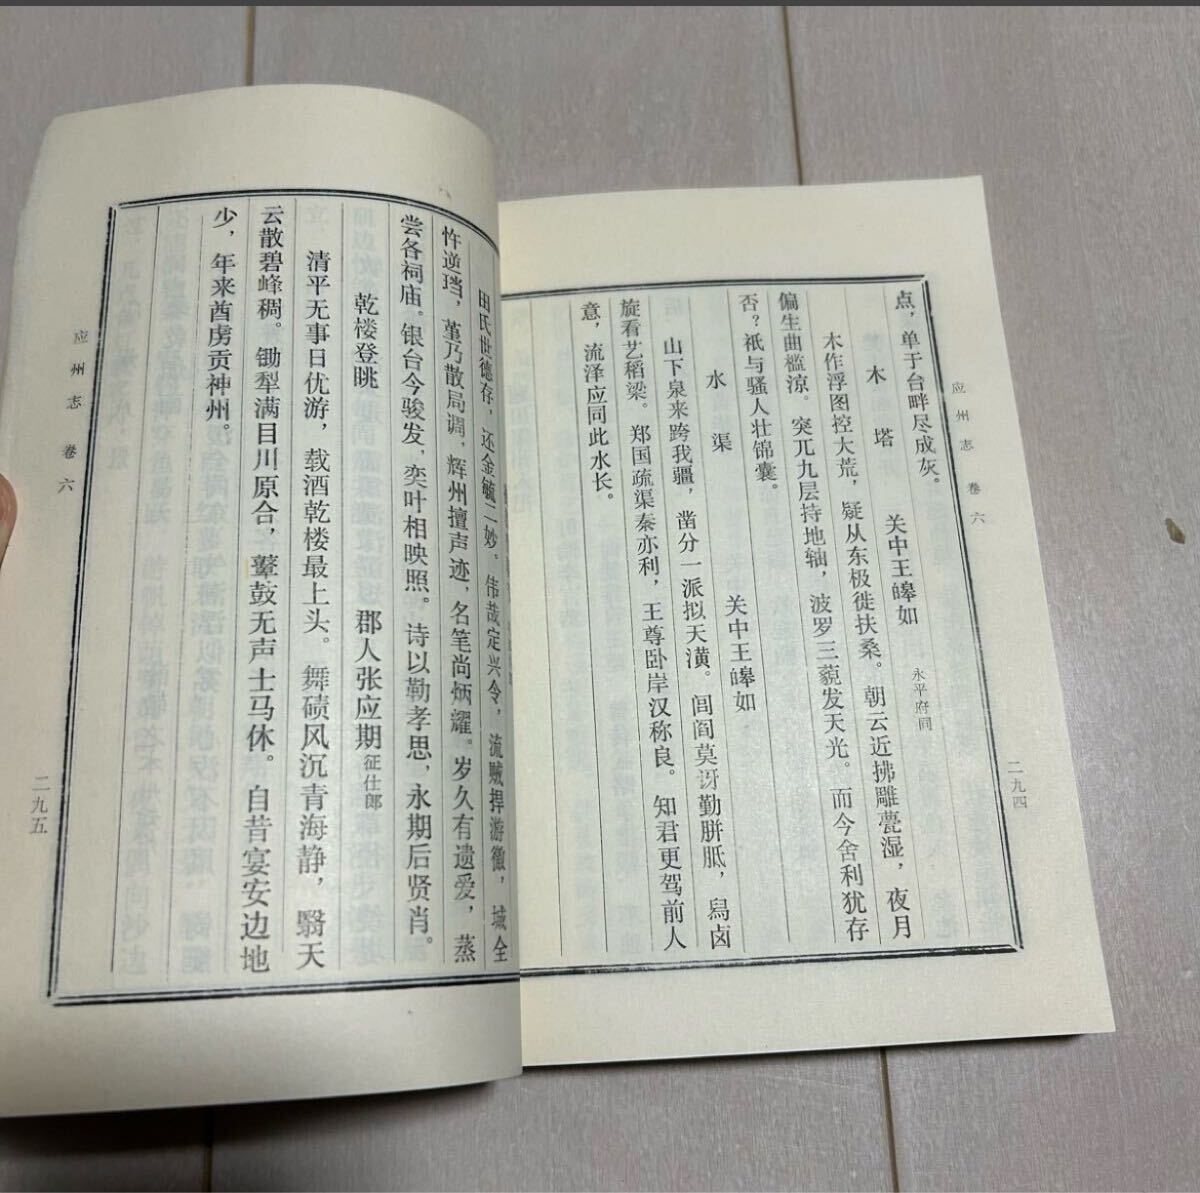 应州志 卷六
二九四
点，单于台畔尽成灰。
木塔 关中王皞如 永平府同
木作浮图控大荒，疑从东极徙扶桑。朝云近拂雕甍湿，夜月
偏生曲槛凉。突兀九层持地轴，波罗三藐发天光。而今舍利犹存
否？祇与骚人壮锦囊。
水渠 关中王皞如
山下泉来跨我疆，凿分一派拟天潢。闾阎莫讶勤胼胝，舄卤
旋看艺稻梁。郑国疏渠秦亦利，王尊卧岸汉称良。知君更驾前人
意，流泽应同此水长。
田氏世德存，还金毓二妙。伟哉定兴令，流贼捍游徼，城全
忤逆珰，堇乃散局调，辉州擅声迹，名笔尚炳耀。岁久有遗爱，蒸
尝各祠庙。银台今骏发，奕叶相映照。诗以勒孝思，永期后贤肖。
乾楼登眺 郡人张应期 征仕郎
清平无事日优游，载酒乾楼最上头。舞碛风沉青海静，翳天
云散碧峰稠。锄犁满目川原合，鼙鼓无声士马休。自昔宴安边地
少，年来酋虏贡神州。
应州志 卷六
二九五